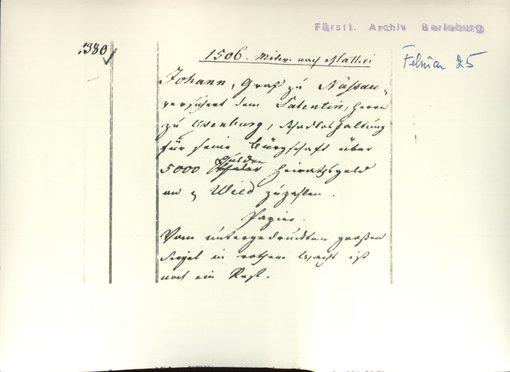 Fürstl. Archiv Berleburg
380
1506. Mitw. nach Mathei
Februar 25
Johann, Graf zu Nassau,
versichert dem Salentin, Herrn
zu Isenburg, Schadloshaltung
für seine Bürgschaft über
5000 Gulden Heiratsgeld
an Wied zuzahlen.
Papier.
Vom untergedruckten großen
Siegel in rothem Wachs ist
noch ein Rest.